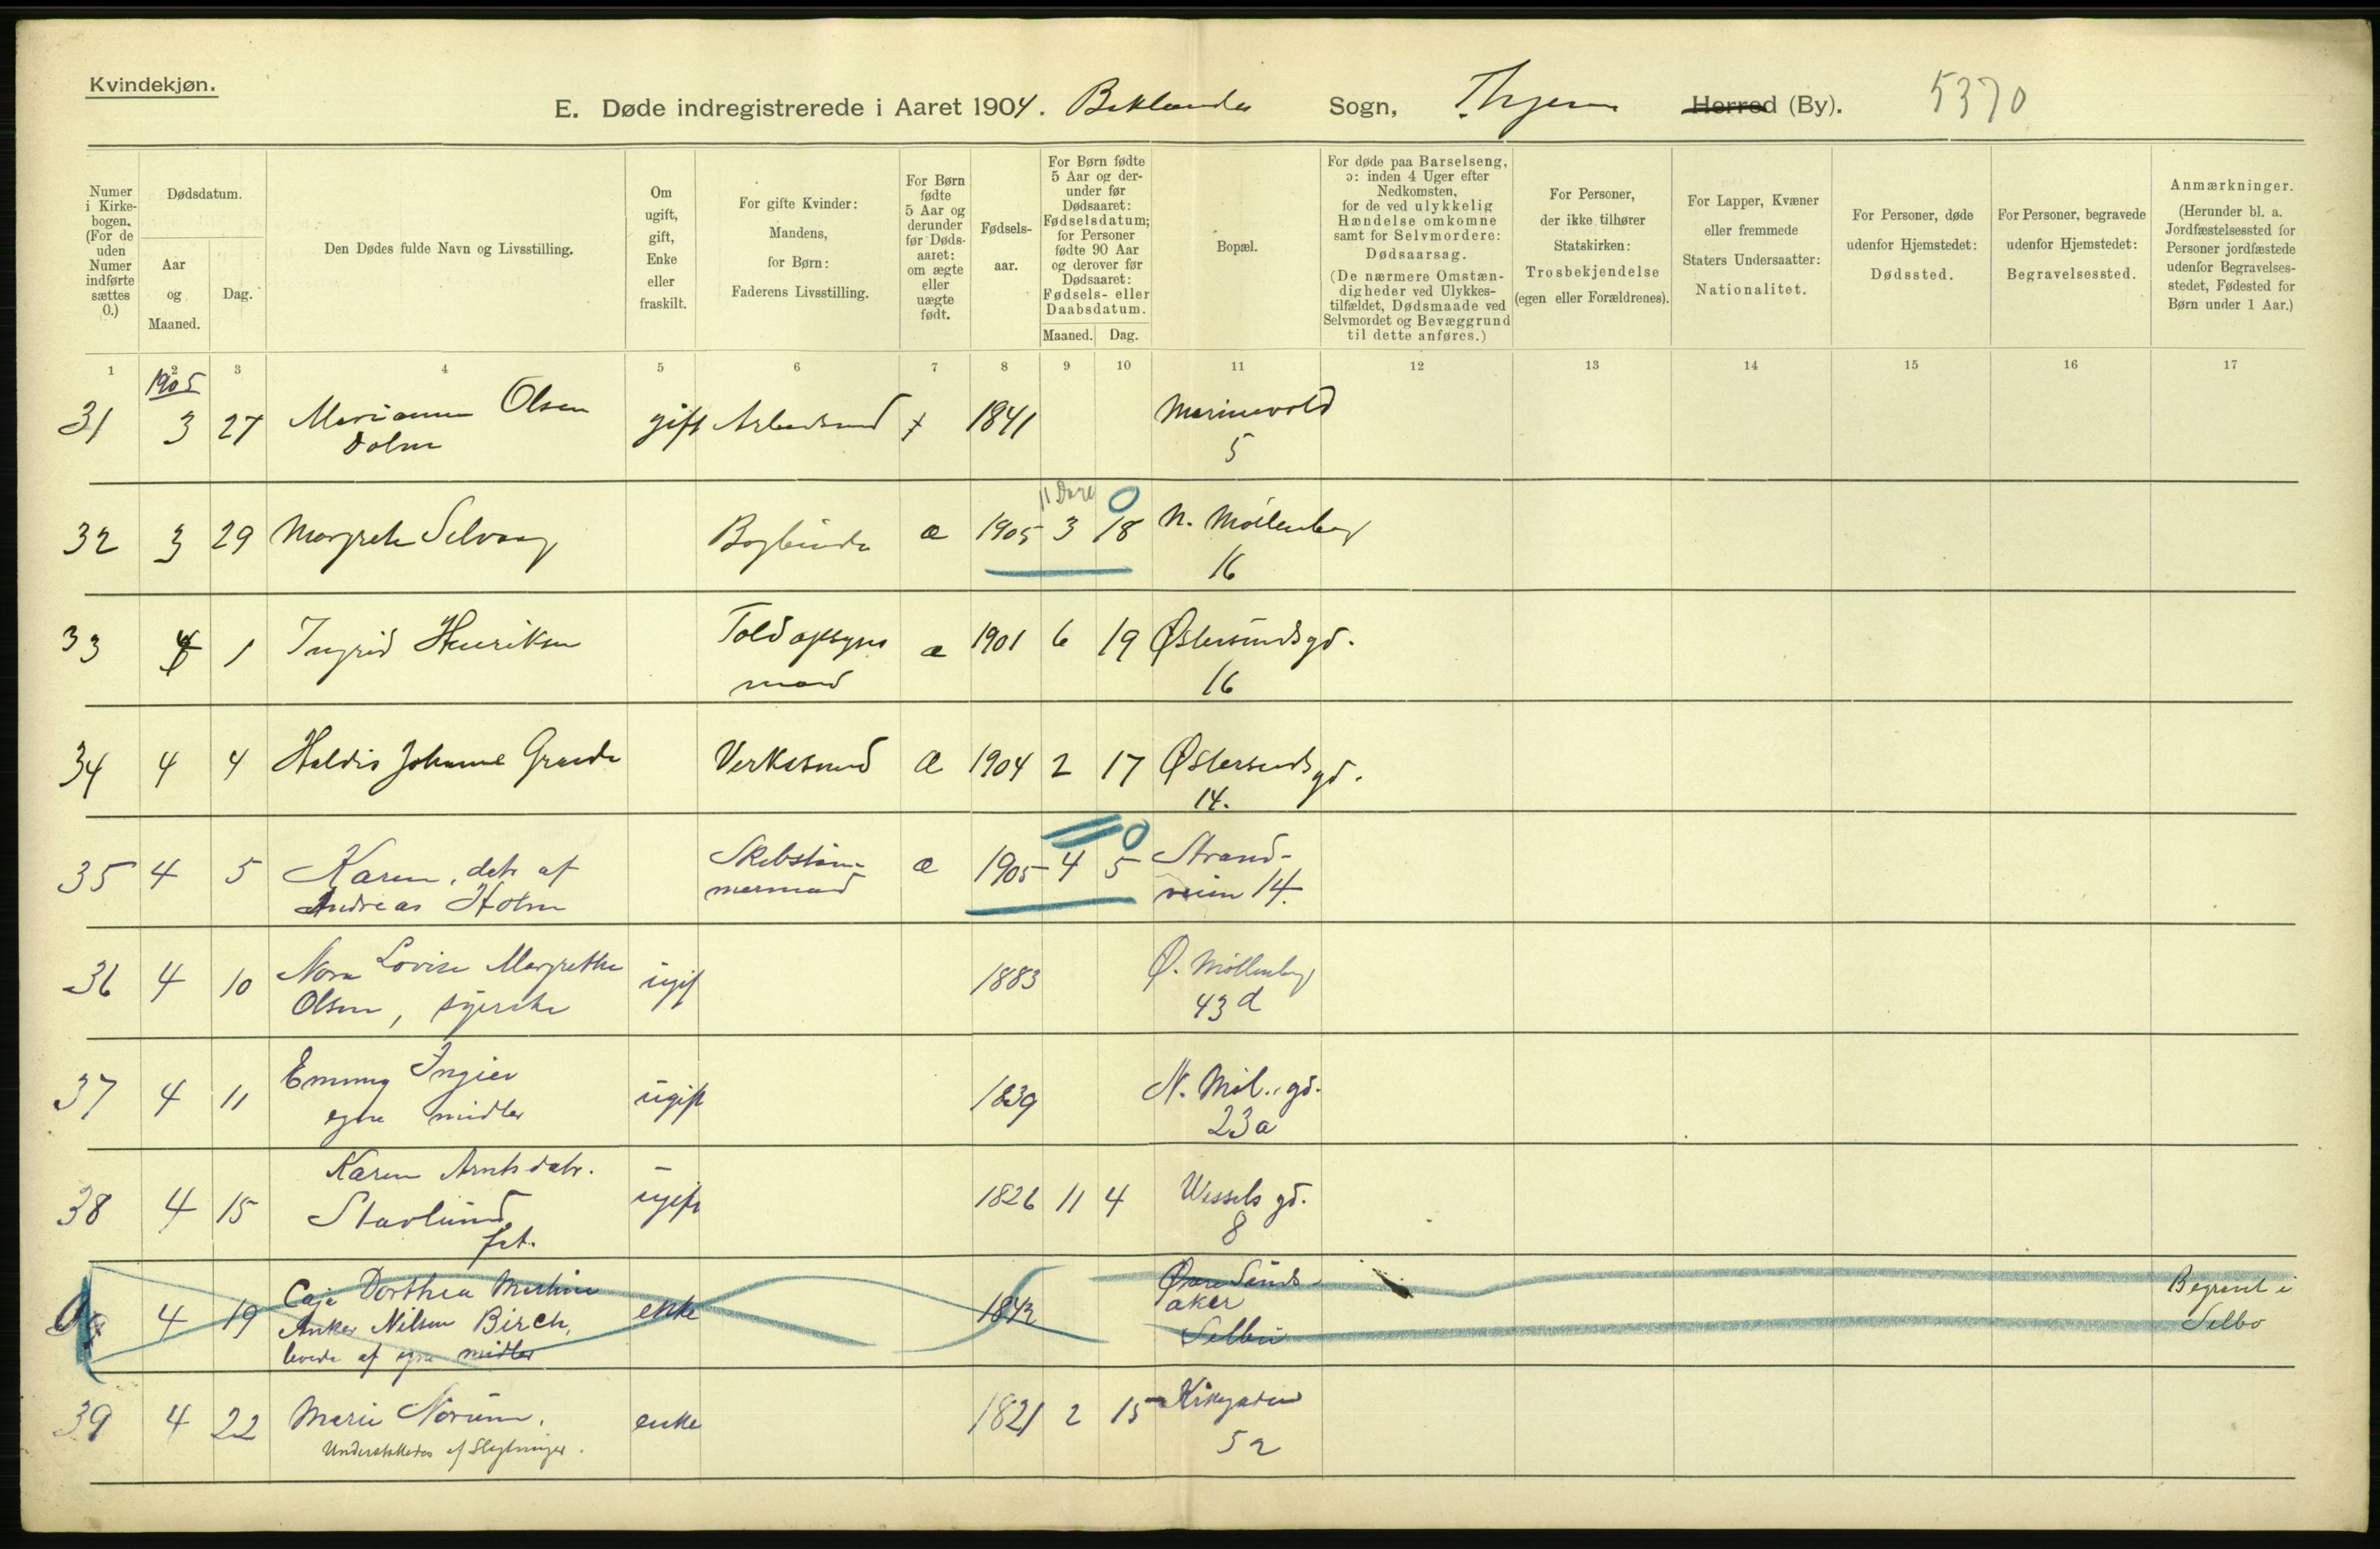 Kvindekjøn.
E. Døde indregistrerede i Aaret 1904. Baklandet Sogn, Thjem Herred (By). 5370
Numer i Kirkebogen. (For de uden Numer indførte sættes 0.)
Dødsdatum.
Aar og Maaned.
Dag.
Den Dødes fulde Navn og Livsstilling.
Om ugift, gift, Enke eller fraskilt.
For gifte Kvinder: Mandens, for Børn: Faderens Livsstilling.
For Børn fødte 5 Aar og derunder før Dødsaaret: om ægte eller uægte født.
Fødselsaar.
For Børn fødte 5 Aar og derunder før Dødsaaret: Fødselsdatum; for Personer fødte 90 Aar og derover før Dødsaaret: Fødsels- eller Daabsdatum.
Maaned. Dag.
Bopæl.
For døde paa Barselseng, ɔ: inden 4 Uger efter Nedkomsten, for de ved ulykkelig Hændelse omkomne samt for Selvmordere: Dødsaarsag. (De nærmere Omstændigheder ved Ulykkestilfældet, Dødsmaade ved Selvmordet og Bevæggrund til dette anføres.)
For Personer, der ikke tilhører Statskirken: Trosbekjendelse (egen eller Forældrenes).
For Lapper, Kvæner eller fremmede Staters Undersaatter: Nationalitet.
For Personer, døde udenfor Hjemstedet: Dødssted.
For Personer, begravede udenfor Hjemstedet: Begravelsessted.
Anmærkninger. (Herunder bl. a. Jordfæstelsessted for Personer jordfæstede udenfor Begravelsesstedet, Fødested for Børn under 1 Aar.)
1 2 3 4 5 6 7 8 9 10 11 12 13 14 15 16 17
1905
31 3 27 Marianne Olsen gift Arbeidsmd 1841 Marinevold
Dolm 5
11 Dage 0
32 3 29 Margrete Selvaag Bogbinder æ 1905 3 18 N. Möllenberg
16
33 4 1 Ingrid Henriksen Toldopsyns æ 1901 6 19 Østersundsgd.
mand 16
34 4 4 Haldis Johanne Grande Verksmd æ 1904 2 17 Østersundsgd.
14.
0
35 4 5 Karen, datr af Skibstøm- æ 1905 4 5 Strand-
Andreas Holm mermand veien 14.
36 4 10 Nora Lovise Margrethe ugift 1883 Ø. Möllenberg
Olsen, syerske 43 d
37 4 11 Emmy Ingier ugift 1839 N. Möl. gd.
egne midler 23a
38 4 15 Karen Arntsdatr. ugift 1826 11 4 Wessels gd.
Stavlund 8
fat.
0 4 19 Caja Dorthea Martine enke 1843 Øvre Sands- Begravet i
Anker Nilsen Birch, aker Selbo
levede af egne midler Selbu
39 4 22 Marie Norum, enke 1821 2 15 Kirkegaden
Understøttedes af Slægtninger. 52